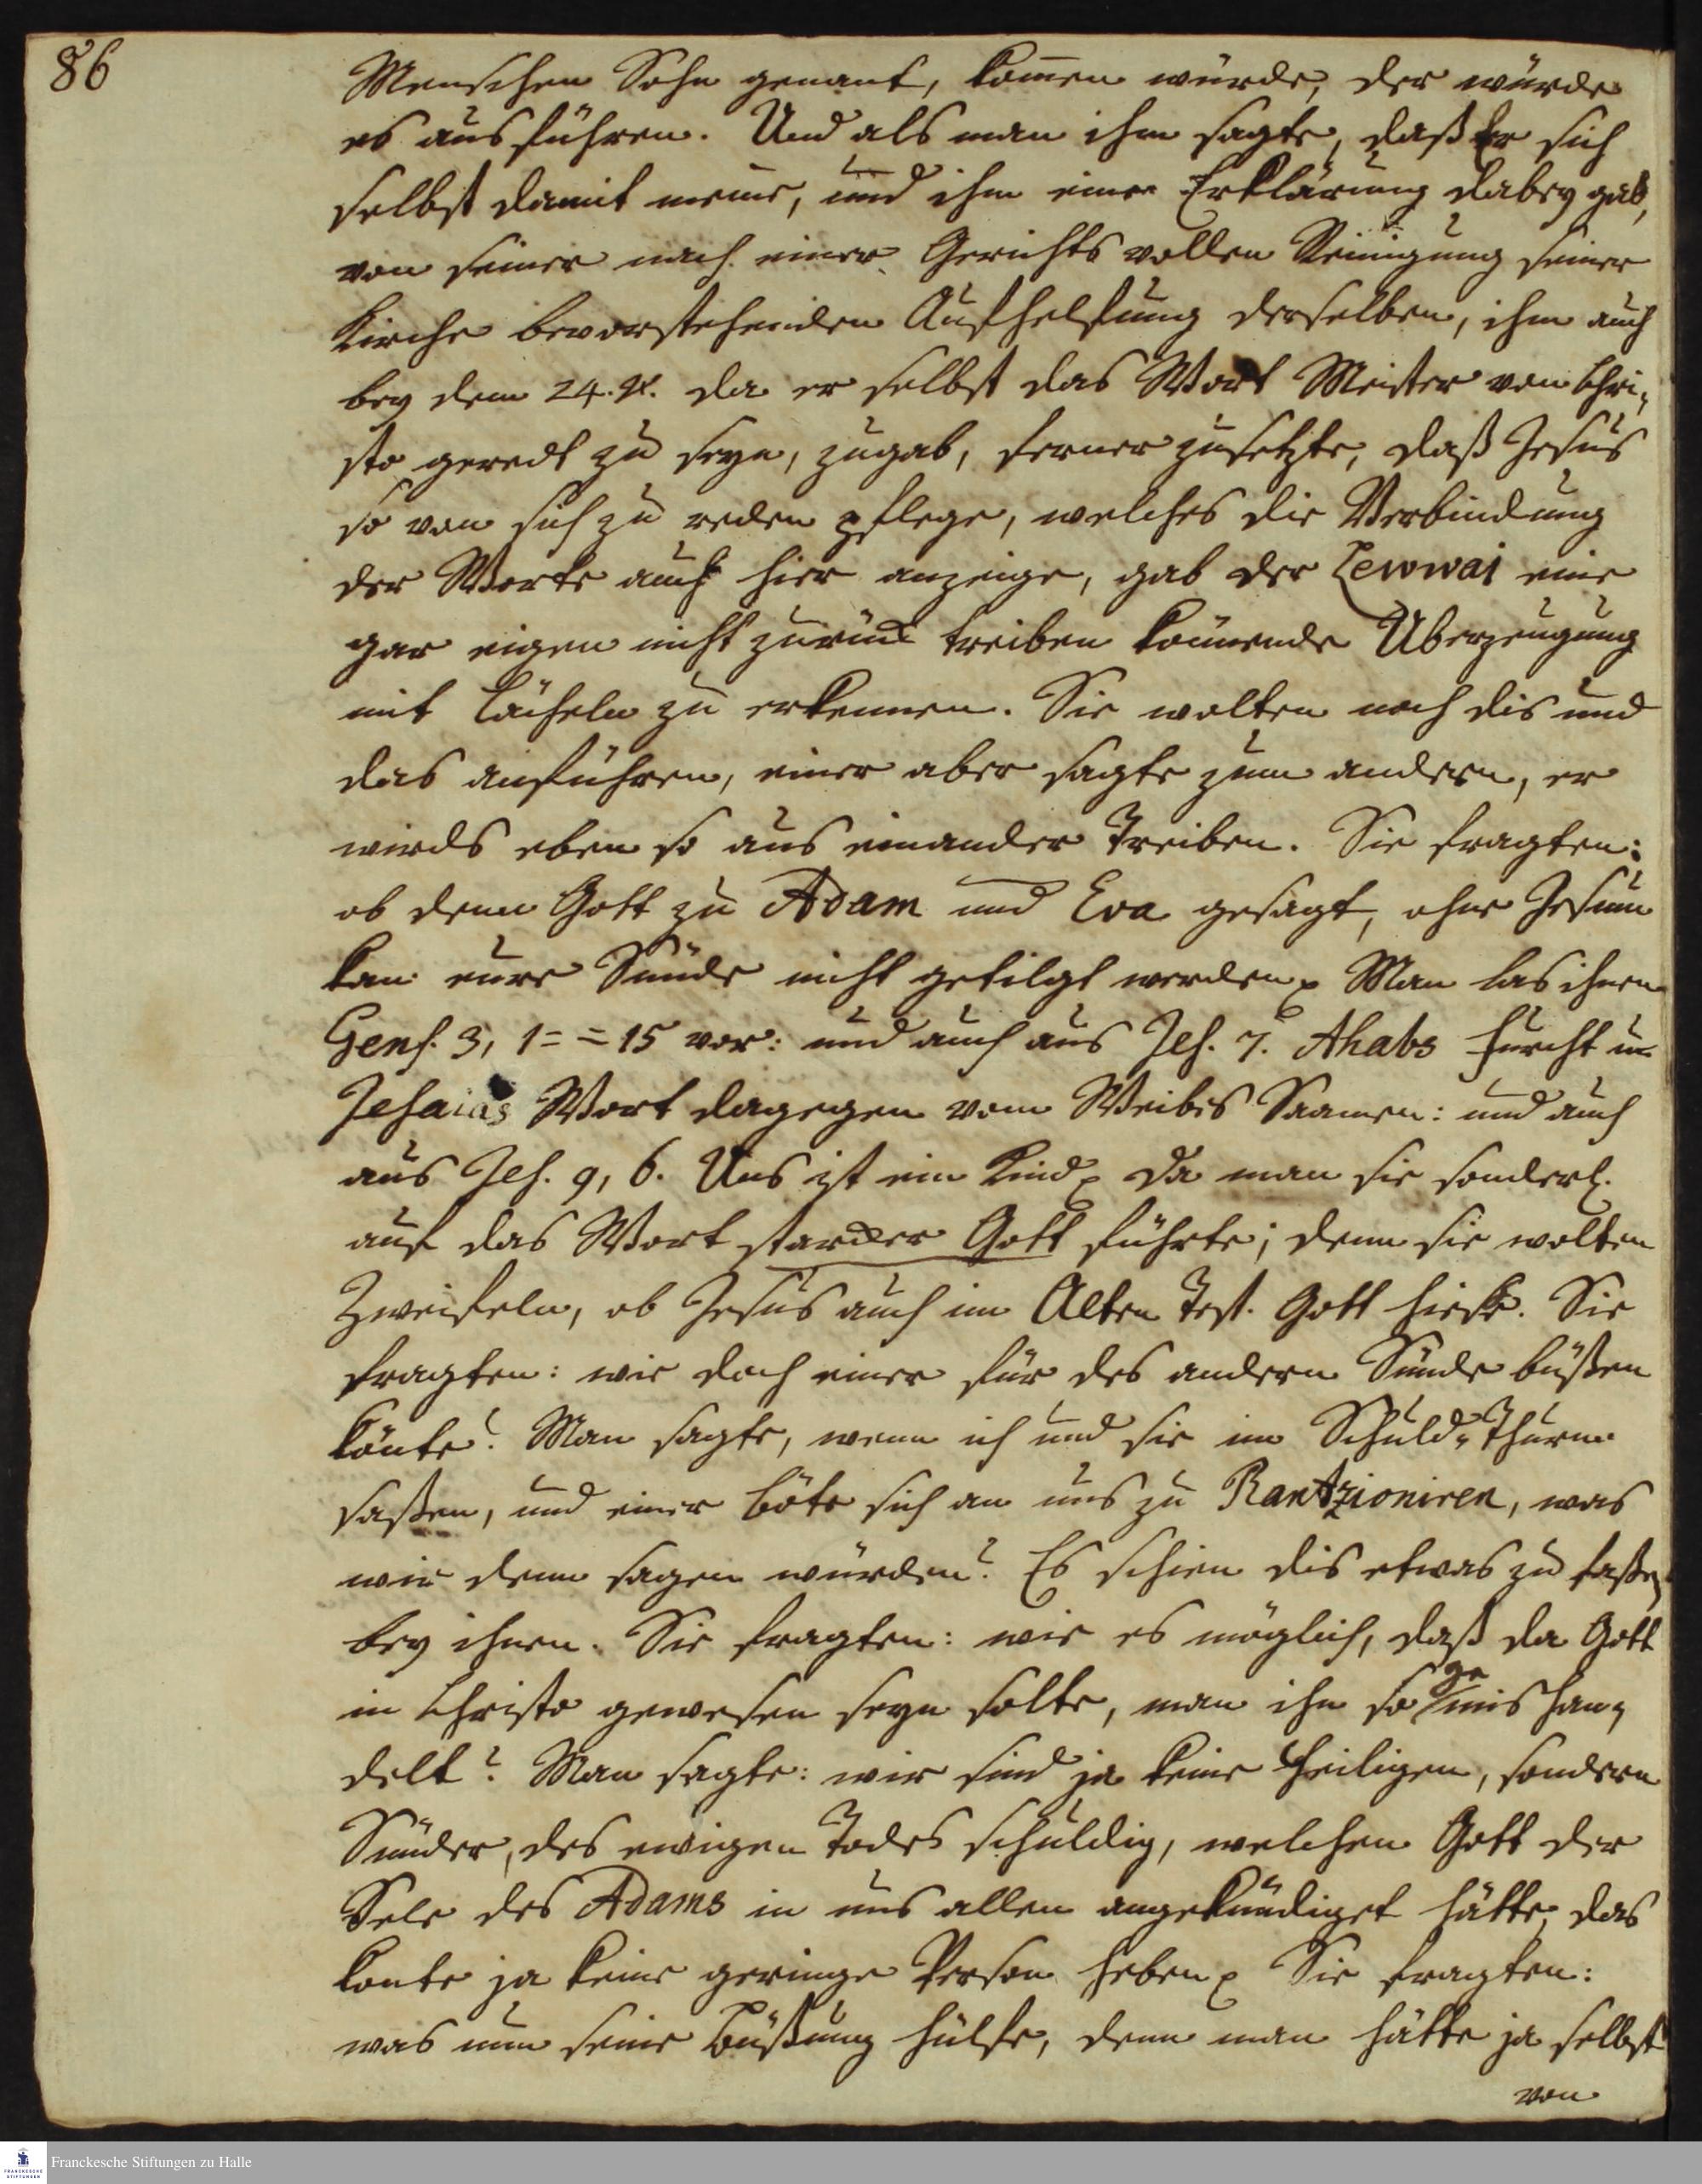 86
Menschen Sohn genant, kom̅en würde, der würde
es ausführen. Und als man ihm sagte, daß Er sich
selbst damit meine, und ihm eine Erklärung dabey gab,
von seiner nach einer Gerichts vollen Reinigung seiner
Kirche bevorstehenden Aufhelffung derselben, ihm auch
bey dem 24. V. da er selbst das Wort Meister von Chri-
sto geredt zu seyn, zugab, ferner zusetzte, daß Jesus
so von sich zu reden pflege, welches die Verbindung
der Worte auch hier anzeige, gab der Lewwai eine
gar eigen nicht zurück treiben könnende Überzeugung
mit Lächeln zu erkennen. Sie wolten noch dis und
das anführen, einer aber sagte zum andern, er
wirds eben so aus einander Treiben. Sie fragten:
ob denn Gott zu Adam und Eva gesagt, ohne Jesum
kan eure Sünde nicht getilgt werden. Man las ihnen
Genes. 3, 1==15 vor: und auch aus Jes. 7. Ahabs Furcht u.
Jesaias Wort dagegen vom Weibes Saamen: und auch
aus Jes. 9, 6. Uns ist ein Kind. Da man sie sonderl.
auf das Wort starcker Gott führte; denn sie wolten
Zweifeln, ob Jesus auch im Alten Test. Gott hieße. Sie
fragten: wie doch einer für des andern Sünde büßen
könte? Man sagte, wenn ich und sie im Schuld-Thurm
saßen, und einer böte sich an uns zu Rantzioniren, was
wir denn sagen würden? Es schien dis etwas zu faßen
bey ihnen. Sie fragten: wie es möglich, daß da Gott
in Christo gewesen seyn solte, man ihn so gemishan-
delt? Man sagte: wir sind ja keine Heiligen, sondern
Sünder, des ewigen Todes schuldig, welchen Gott der
Sele des Adams in uns allen angekündiget hätte, das
konte ja keine geringe Person heben. Sie fragten:
was nun seine Büßung hülfe, denn man hätte ja selbst
von
Franckesche Stiftungen zu Halle